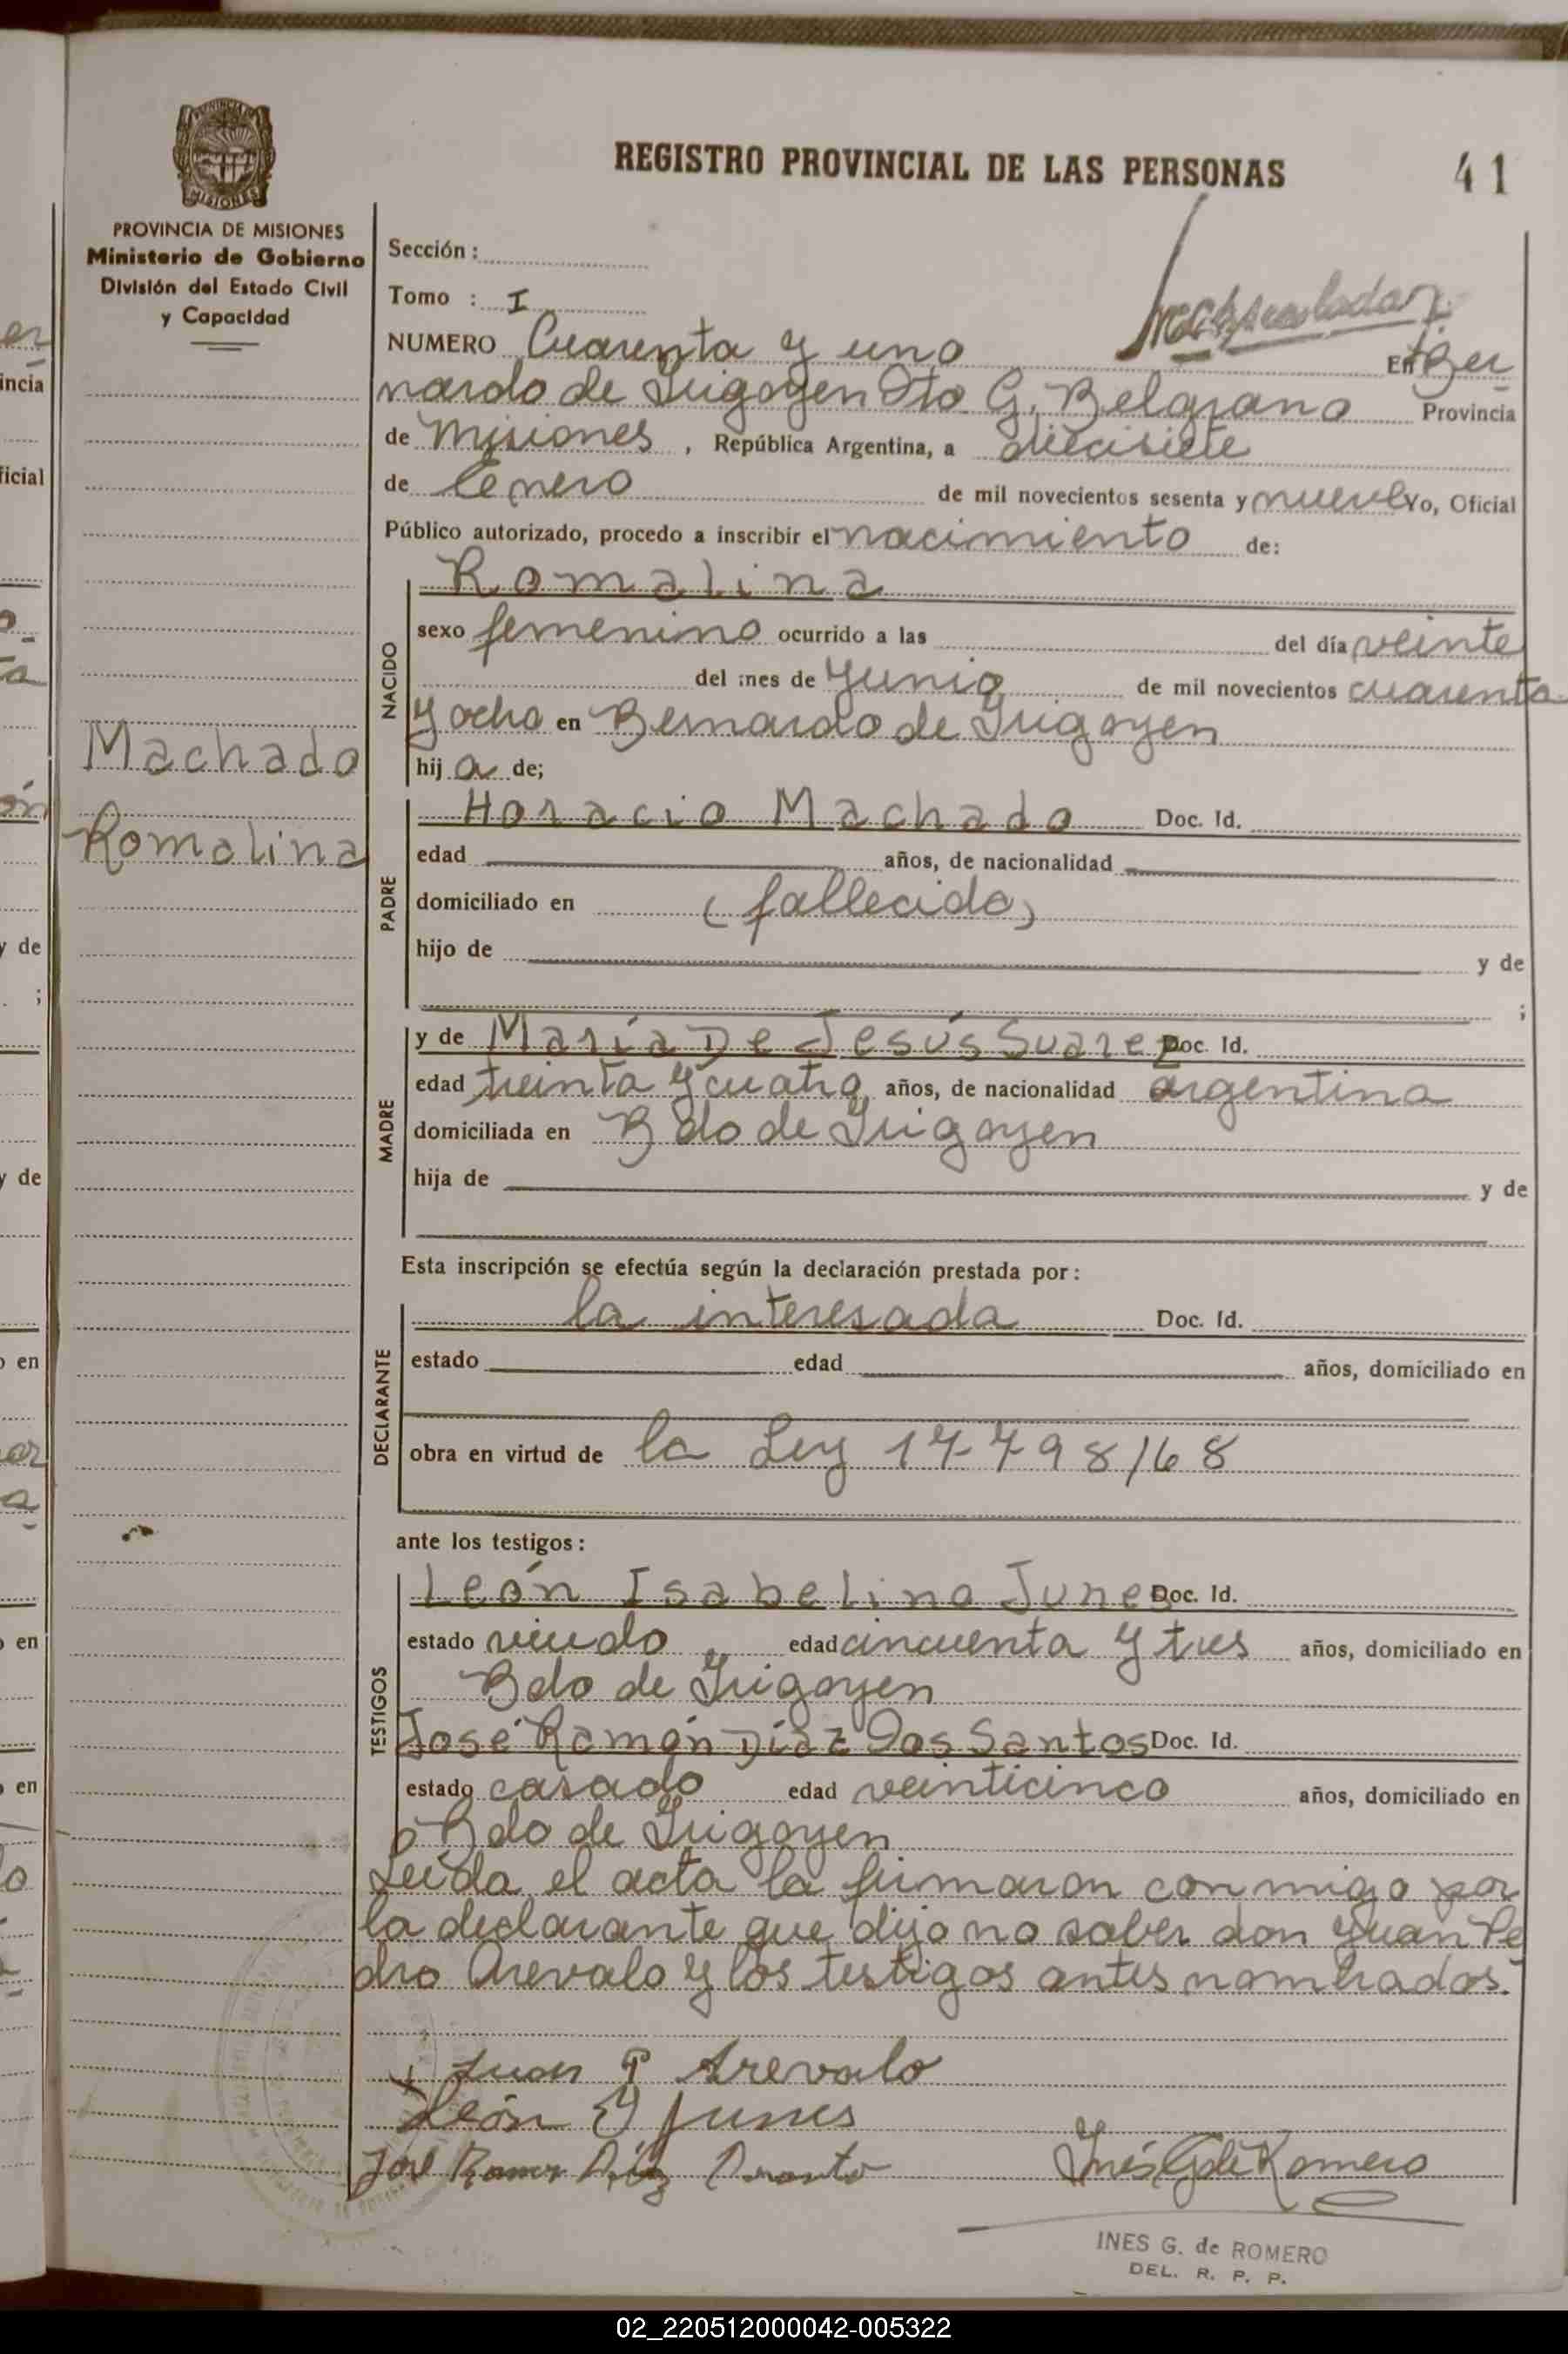 REGISTRO PROVINCIAL DE LAS PERSONAS
41
PROVINCIA DE MISIONES
Ministerio de Gobierno
División del Estado Civil
y Capacidad
Machado
Romalina
Sección :
Tomo : I
NUMERO Cuarenta y uno En Ber
nardo de Irigoyen Dto G. Belgrano Provincia
de Misiones, República Argentina, a diecisiete
de Enero de mil novecientos sesenta y nueve Yo, Oficial
Público autorizado, procedo a inscribir el nacimiento de:
NACIDO
Romalina
sexo femenino ocurrido a las del día veinte
del mes de Junio de mil novecientos cuarenta
y ocho en Bernardo de Irigoyen
hij a de;
PADRE
Horacio Machado Doc. Id.
edad años, de nacionalidad
domiciliado en (fallecido)
hijo de y de
;
MADRE
y de María De Jesús Suarez Doc. Id.
edad treinta y cuatro años, de nacionalidad argentina
domiciliada en Bdo de Irigoyen
hija de y de
Esta inscripción se efectúa según la declaración prestada por :
DECLARANTE
la interesada Doc. Id.
estado edad años, domiciliado en
obra en virtud de la Ley 17-798/68
ante los testigos :
TESTIGOS
León Isabelino Junes Doc. Id.
estado viudo edad cincuenta y tres años, domiciliado en
Bdo de Irigoyen
José Ramón Díaz Dos Santos Doc. Id.
estado casado edad veinticinco años, domiciliado en
Bdo de Irigoyen
Leída el acta la firmaron conmigo por
la declarante que dijo no saber don Juan Pe
dro Arevalo y los testigos antes nombrados.
Juan P Arevalo
León Y Junes
José Ramon Díaz
Inés G de Romero
INES G. de ROMERO
DEL. R. P. P.
02_220512000042-005322